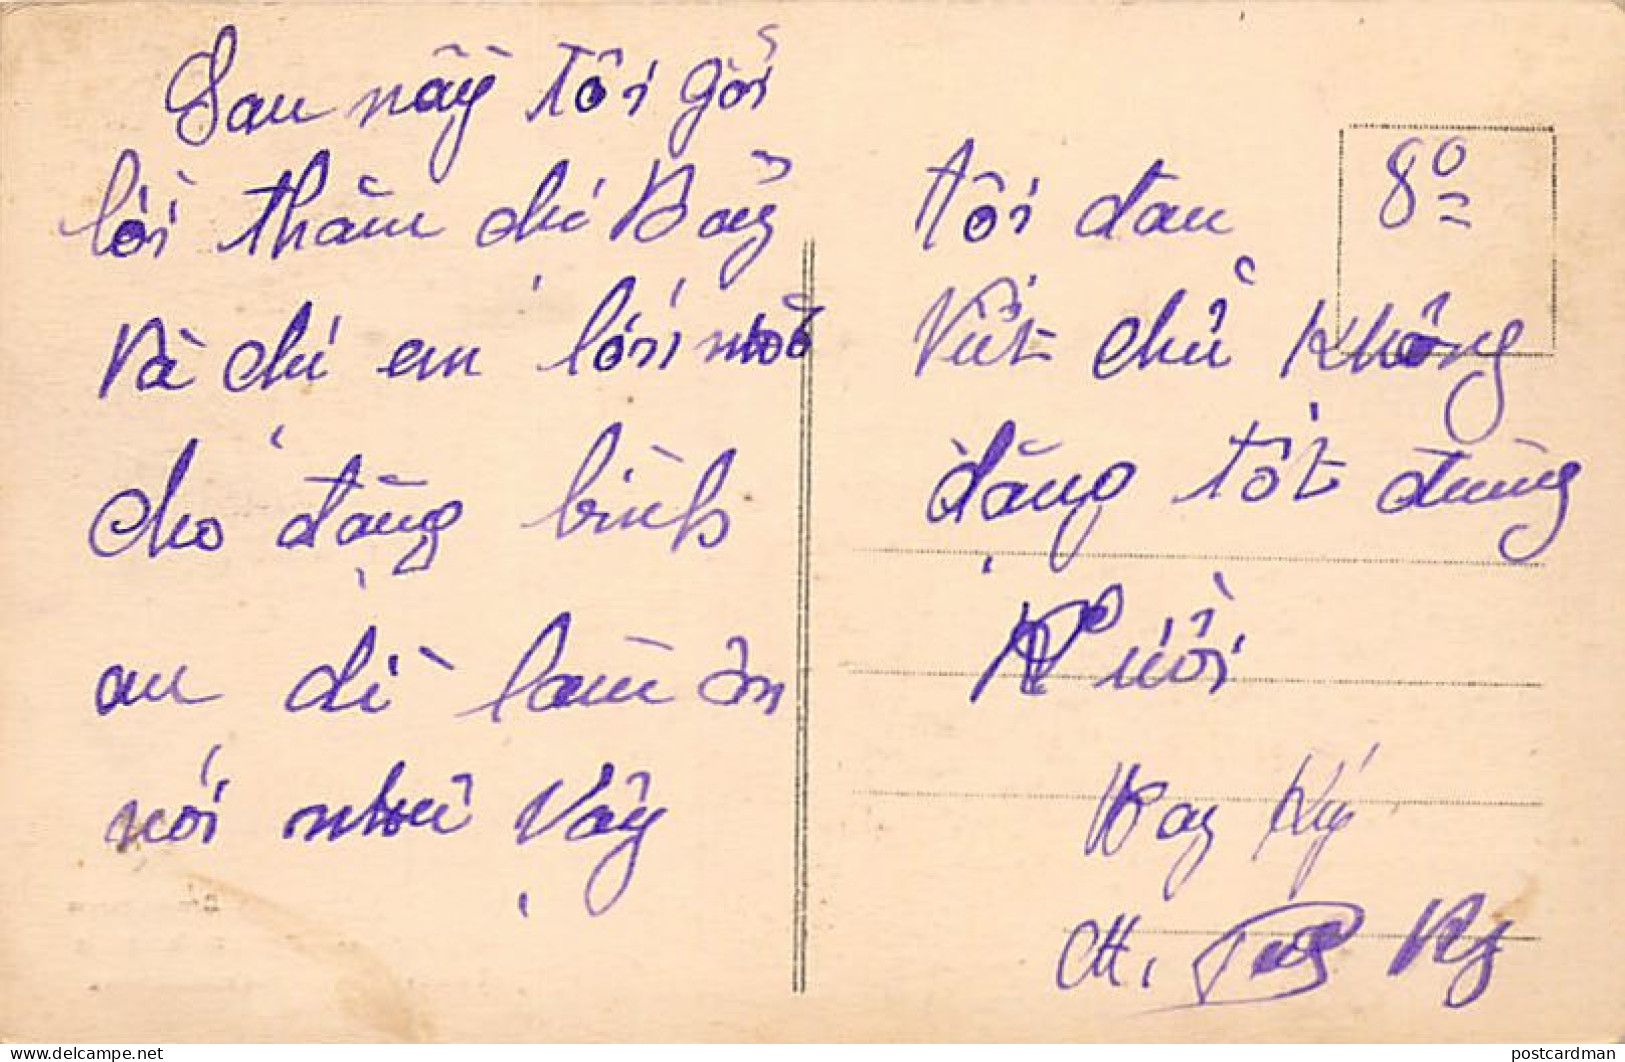 Sau nầy tôi gởi
lời thăm chị Bảy
Và chị em lối
cho đặng bình
an dì làm ăn
nói như Vậy
8º
tôi đau
Viết chử không
đặng tốt đừng
cười
Nay Ký
www.delcampe.net
postcardman